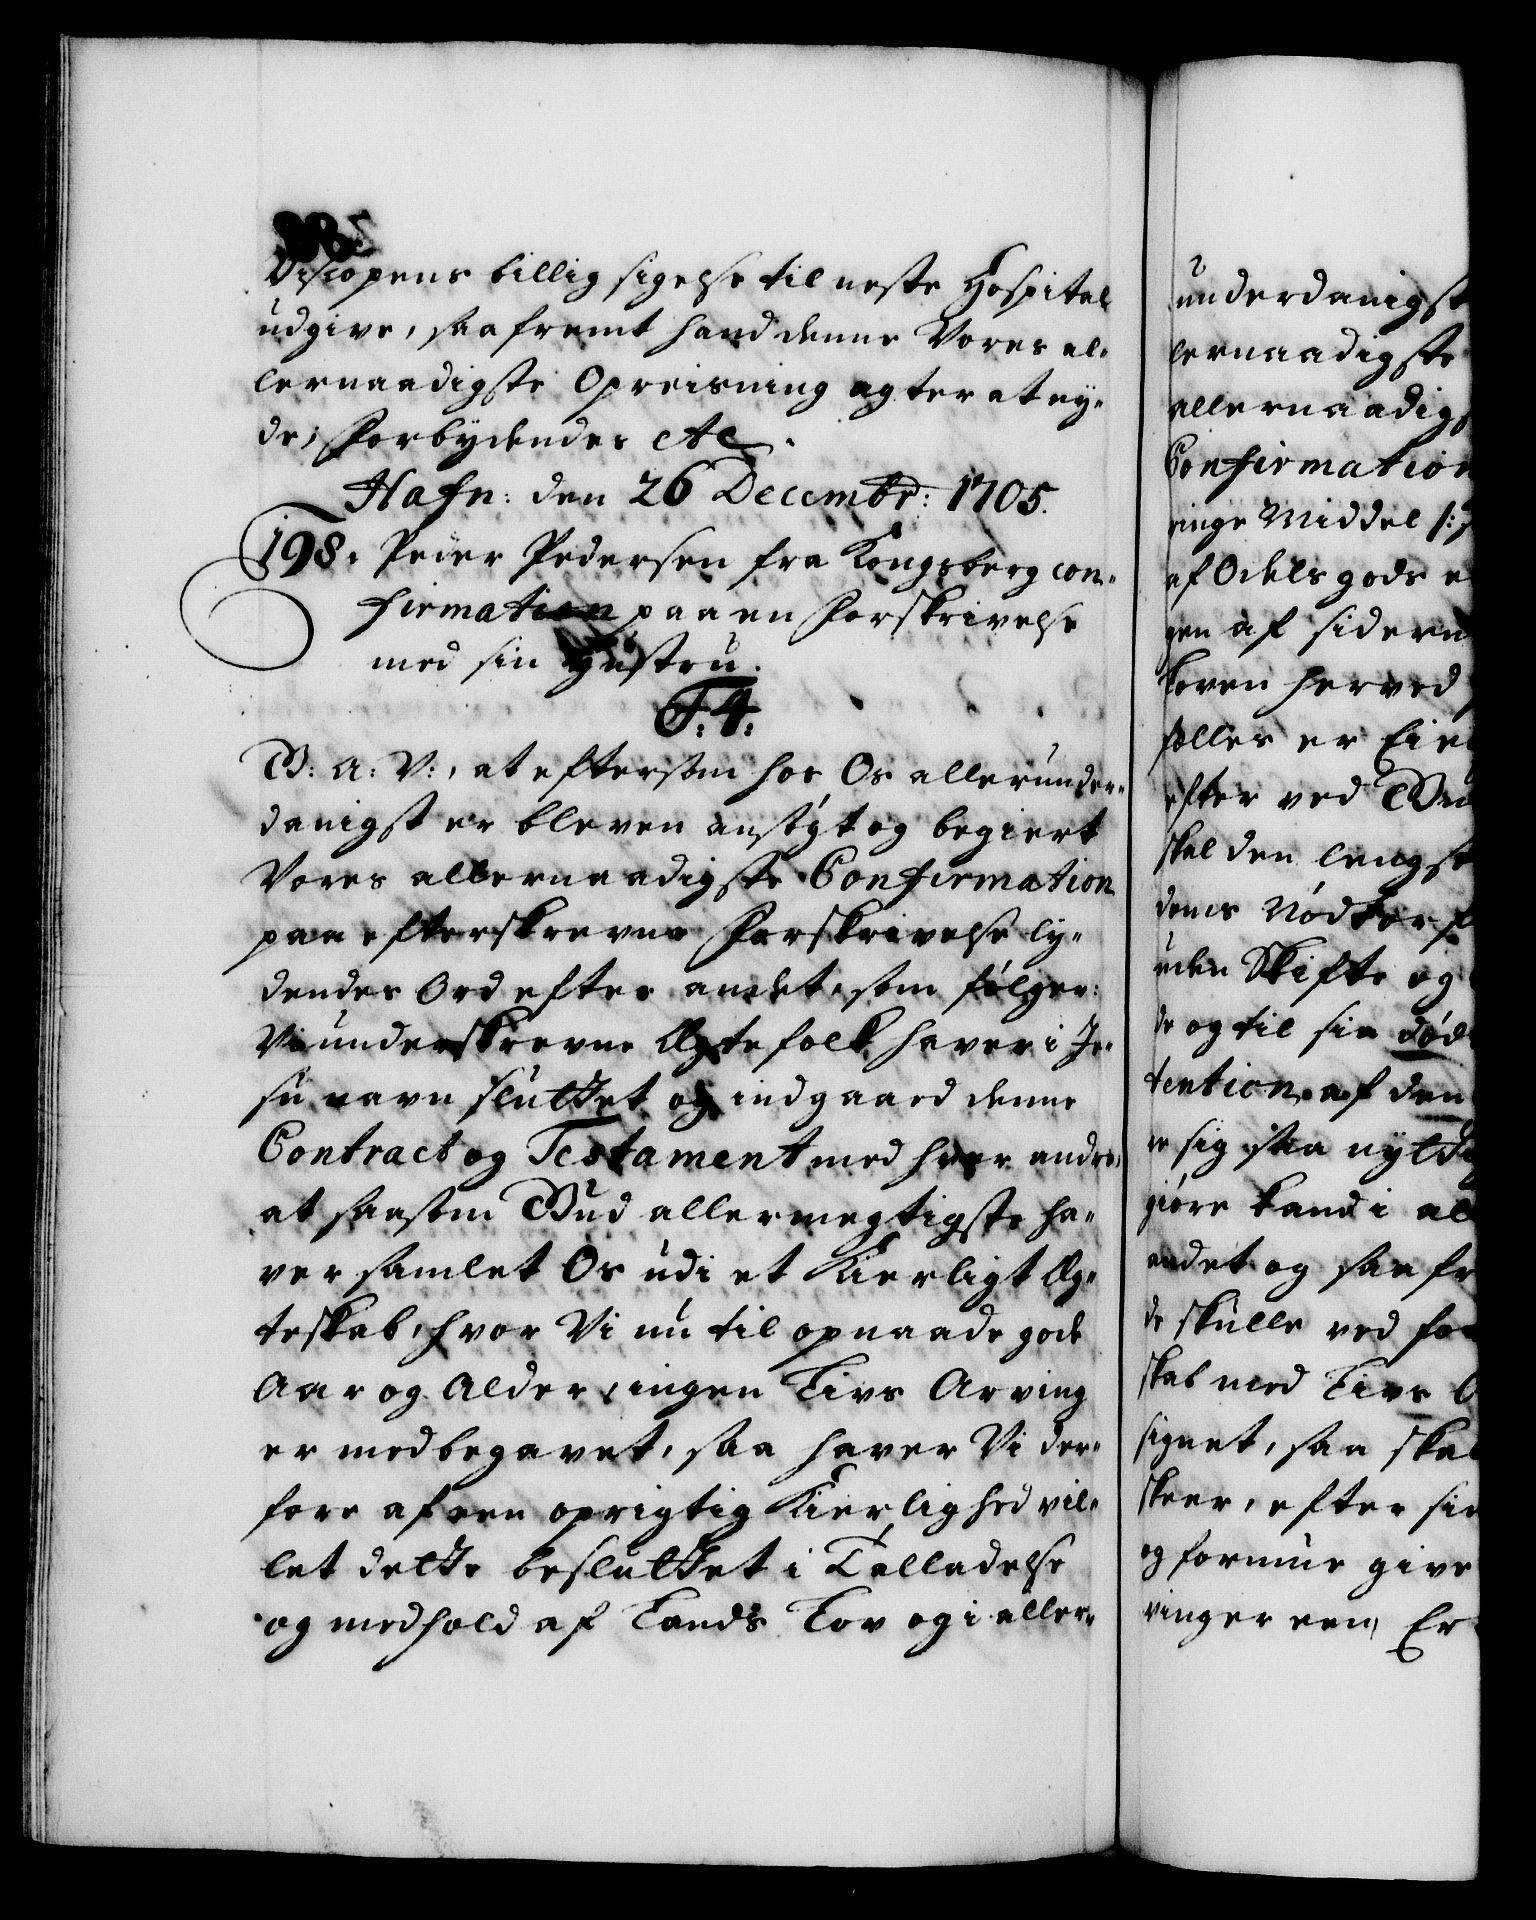 Biscopens billig sigelse til neste Hospital
udgive, saafremt hand denne Vores al-
lernaadigste Opreisning agter at ny-
de; Forbydendes etc.
Hafn: den 26 Decembr: 1705.
198. Peder Pedersen fra Kongsberg con-
firmation paa en Forskrivelse
med sin Hustru.
F: 4:
G: A: V:, at eftersom hos Os allerunder-
danigst er bleven ansøgt og begiert
Vores allernaadigste Confirmation
paa efterskrevne Forskrivelse ly-
dendes Ord efter andet, som følger:
Vi underskrevne Ægtefolk haver i Je-
su navn sluttet og indgaaed denne
Contract og Testament med hver andre,
at saasom Gud allermegtigste ha-
ver samlet Os udi et Kierligt Æg-
teskab, hvor Vi nu til opnaade gode
Aar og Alder, ingen Livs Arving
er med begavet, saa haver Vi der-
fore af een oprigtig Kierlighed vil-
let dette besluttet i Tilladelse
og medhold af Lands Lov og i aller-
underdanigst
lernaadigste
allernaadigs
Confirmation
ringe Middel /:
af Odelsgods e
gen af siderne
Loven herved
felles er Eie
efter ved Gu
skal den lengst
denes Nødtørf
uden Skifte og
de og til sin død
tention af den
re sig saa nytti
giøre kand i al
andet og saafr
de skulle ved for
skab med Livs A
signet, saa skal
skeer, efter sin
og formue give
vinger een, Er